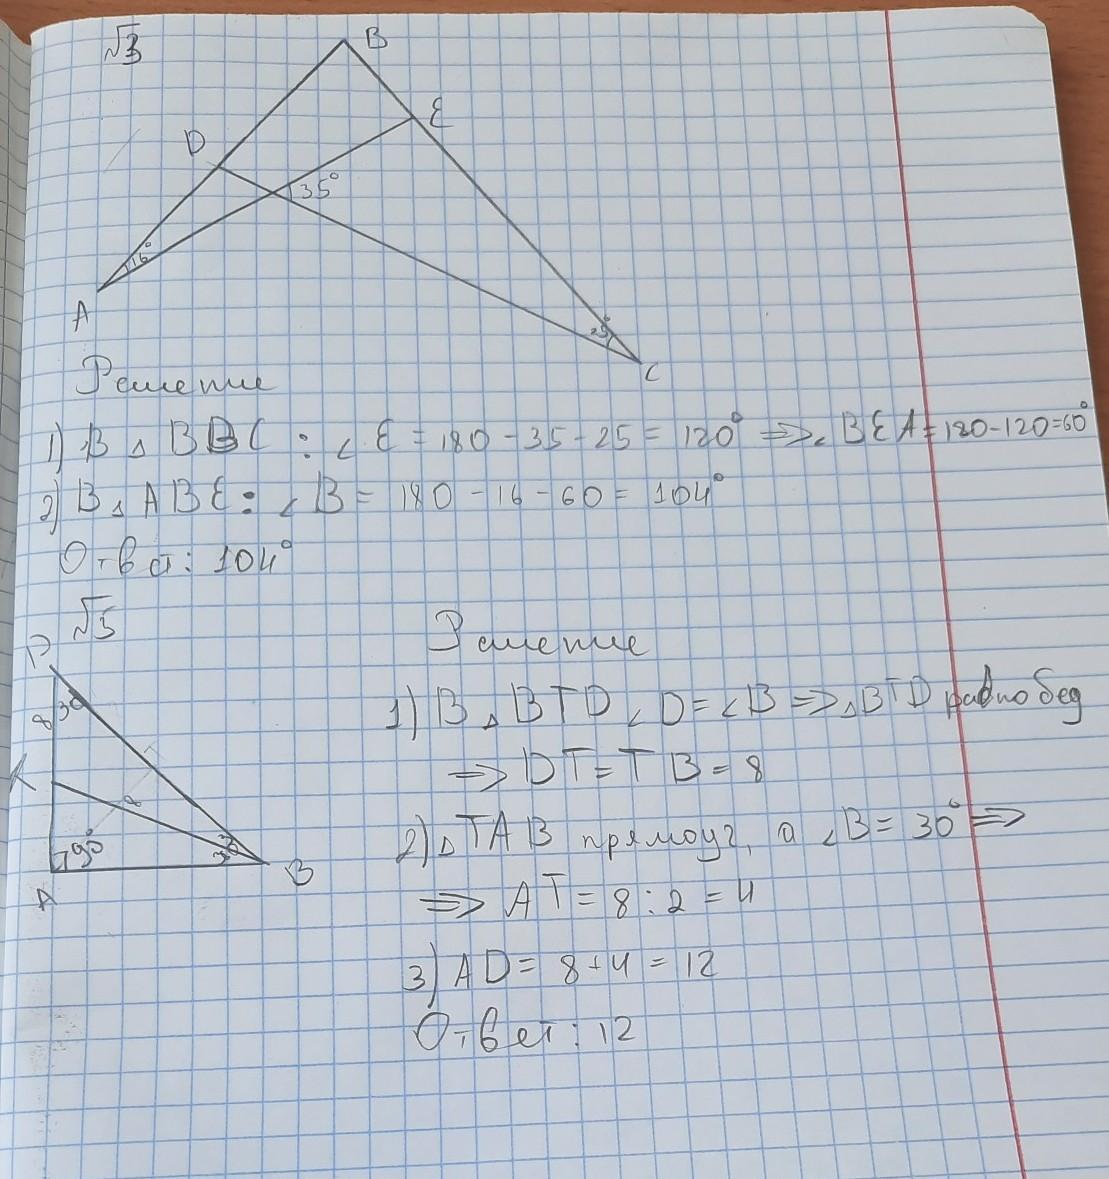 √3
B
E
D
35°
16°
A
25°
C
Решение
1) В △ BBC : ∠ E = 180 - 35 - 25 = 120° => ∠ BEA = 180 - 120 = 60°
2) В △ ABE : ∠ B = 180 - 16 - 60 = 104°
Ответ: 104°
√5
Решение
D
8
30
8
90°
30
A
B
1) В △ BTD ∠ D = ∠ B => △ BTD равнобед
=> DT = TB = 8
2) △ TAB прямоуг, а ∠ B = 30° =>
=> AT = 8 : 2 = 4
3) AD = 8 + 4 = 12
Ответ: 12